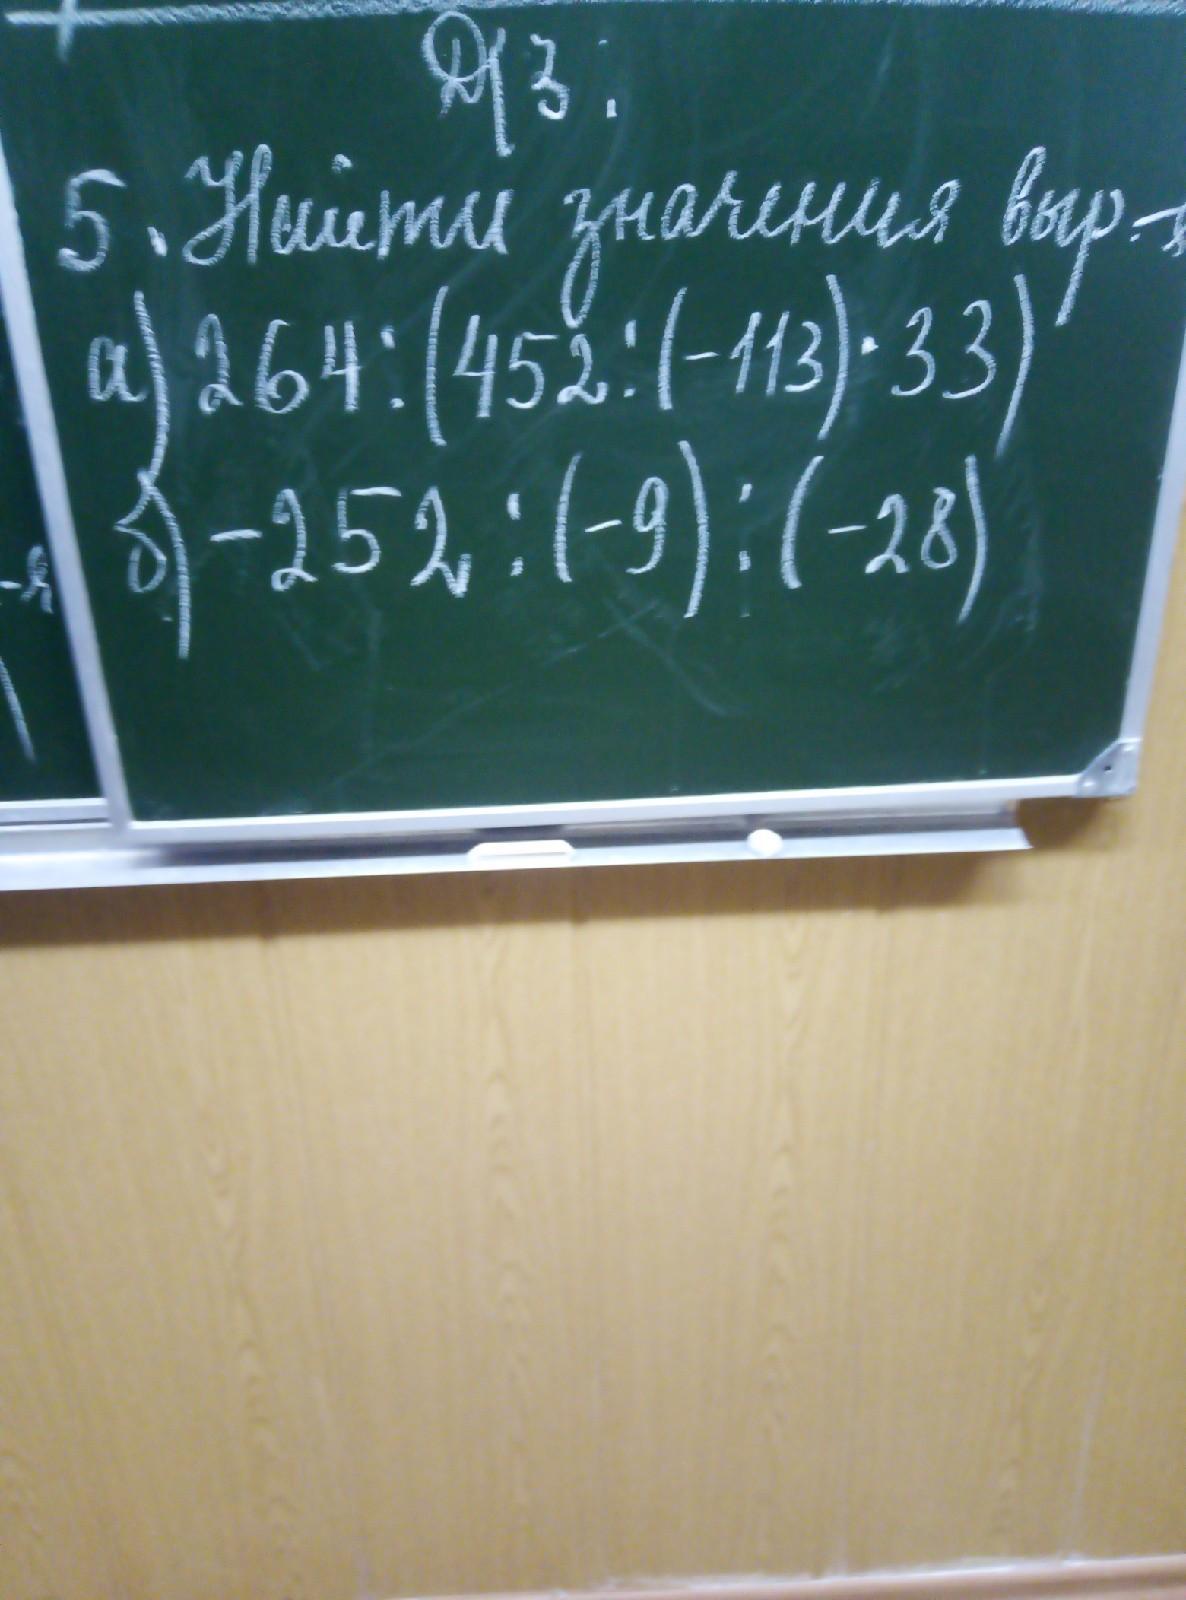 Д/З:
5. Найти значения выр-я
а) 264:(452:(-113)·33)
б) -252:(-9):(-28)
-я